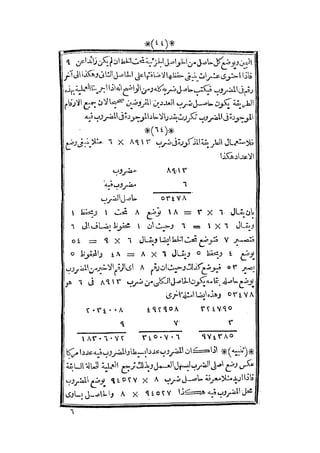 *(٤٤)*
اليمين ويوضع كل حاصل من الحواصل الجزئية تحت الخط ان لم يكن زائدا عن ٩
فاذا احتوى عشرات ينبغى حفظها لاضافتها على الحاصل الثانى وهكذا الى آخر
رقم فى المضروب فيكتب حاصل ضربه كله ومن الواضح انه اذا اجريت العملية بهذه
الطريقة يكون حاصل ضرب العددين المفروضين صحيحا لان جميع الارقام
الموجودة فى المضروب تكررت بقدر الآحاد الموجودة فى المضروب فيه
*(٦٤)*
فلاستعمال الطريقة المذكورة فى ضرب ٨٩١٣ × ٦ مثلا ينبغى وضع
الاعداد هكذا
٨٩١٣ مضروب
٦ مضروب فيه
٥٣٤٧٨ حاصل الضرب
بان يقال ٦ × ٣ = ١٨ يوضع ٨ تحت ١ ويحفظ ١
ويقال ٦ × ١ = ٦ وحيث ان ١ محفوظ يضاف الى ٦
فتصير ٧ فتوضع تحت الخط ايضا ويقال ٦ × ٩ = ٥٤
يوضع ٤ ويحفظ ٥ ويقال ٦ × ٨ = ٤٨ والمحفوظ ٥
يصير ٥٣ فيوضع كذلك وحيث ان رقم ٨ اى الرقم الاخير من المضروب
يوضع حاصله بتمامه يكون الحاصل الكلى من ضرب ٨٩١٣ فى ٦ هو
٥٣٤٧٨ وهذه ايضا امثلة اخرى
٣٢٤٧٩٥ ٤٩٢٩٥٨ ٢٠٣٤٠٠٨
٣ ٧ ٩
٩٧٤٣٨٥ ٣٤٥٠٧٠٦ ١٨٣٠٦٠٧٢
*(تنبيه)* اذا كان المضروب عددا بسيطا والمضروب فيه عددا مركبا
عكس وضع اصلى الضرب ليسهل العمل وبذلك ترجع العملية للحالة السابقة
فاذا اريد مثلا معرفة حاصل ضرب ٨ × ٩٤٥٢٧ يوضع المضروب
محل المضروب فيه هكذا ٩٤٥٢٧ × ٨ والحاصل يساوى
٦